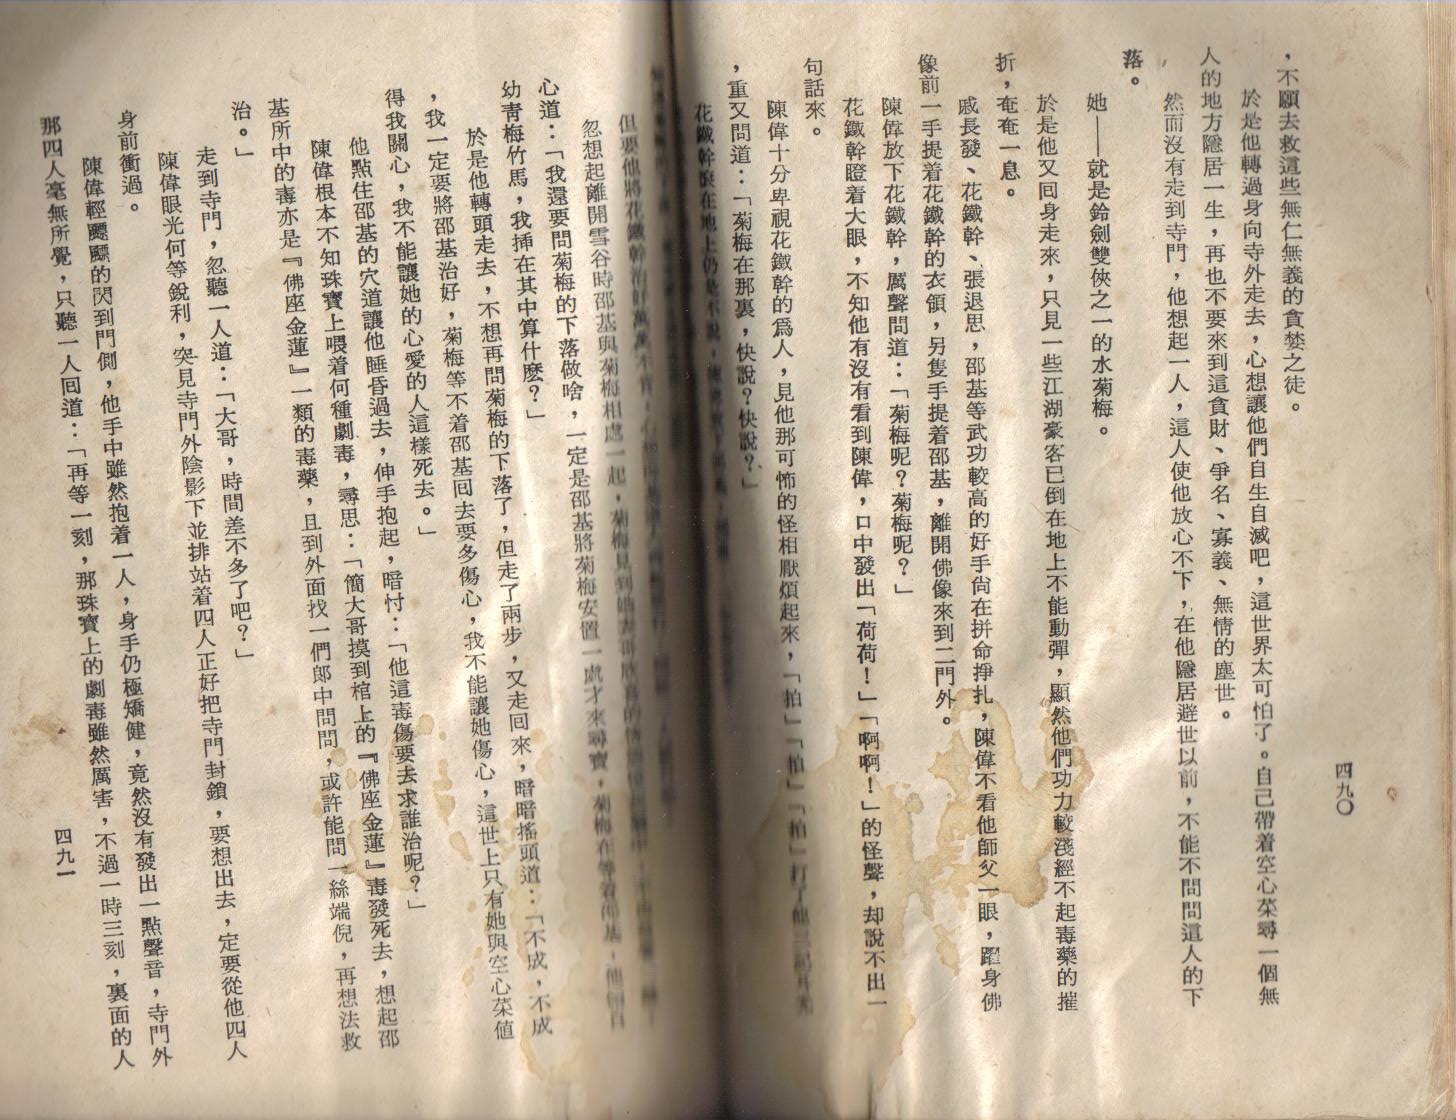 四九〇
，不願去救這些無仁無義的貪婪之徒。
於是他轉過身向寺外走去，心想讓他們自生自滅吧，這世界太可怕了。自己帶着空心菜尋一個無
人的地方隱居一生，再也不要來到這貪財、爭名、寡義、無情的塵世。
然而沒有走到寺門，他想起一人，這人使他放心不下，在他隱居避世以前，不能不問問這人的下
落。
她——就是鈴劍雙俠之一的水菊梅。
於是他又回身走來，只見一些江湖豪客已倒在地上不能動彈，顯然他們功力較淺經不起毒藥的摧
折，奄奄一息。
戚長發、花鐵幹、張退思，邵基等武功較高的好手尙在拼命掙扎，陳偉不看他師父一眼，躍身佛
像前一手提着花鐵幹的衣領，另隻手提着邵基，離開佛像來到二門外。
陳偉放下花鐵幹，厲聲問道：「菊梅呢？菊梅呢？」
花鐵幹瞪着大眼，不知他有沒有看到陳偉，口中發出「荷荷！」「啊啊！」的怪聲，却說不出一
句話來。
陳偉十分卑視花鐵幹的爲人，見他那可怖的怪相厭煩起來，「拍」「拍」「拍」打了他三記耳光
，重又問道：「菊梅在那裏，快說？快說？」
花鐵幹躺在地上仍是不說，
但要他將花鐵幹治好萬萬不肯，
忽想起離開雪谷時邵基與菊梅相處一起，菊梅見到
心道：「我還要問菊梅的下落做啥，一定是邵基將菊梅安置一處才來尋寶，菊梅在等着邵基，他倆自
幼靑梅竹馬，我揷在其中算什麽？」
於是他轉頭走去，不想再問菊梅的下落了，但走了兩步，又走回來，暗暗搖頭道：「不成，不成
，我一定要將邵基治好，菊梅等不着邵基回去要多傷心，我不能讓她傷心，這世上只有她與空心菜值
得我關心，我不能讓她的心愛的人這樣死去。」
他點住邵基的穴道讓他睡昏過去，伸手抱起，暗忖：「他這毒傷要去求誰治呢？」
陳偉根本不知珠寶上喂着何種劇毒，尋思：「簡大哥摸到棺上的『佛座金蓮』毒發死去，想起邵
基所中的毒亦是『佛座金蓮』一類的毒藥，且到外面找一們郎中問問，或許能問一絲端倪，再想法救
治。」
走到寺門，忽聽一人道：「大哥，時間差不多了吧？」
陳偉眼光何等銳利，突見寺門外陰影下並排站着四人正好把寺門封鎖，要想出去，定要從他四人
身前衝過。
陳偉輕飄飄的閃到門側，他手中雖然抱着一人，身手仍極矯健，竟然沒有發出一點聲音，寺門外
那四人毫無所覺，只聽一人回道：「再等一刻，那珠寶上的劇毒雖然厲害，不過一時三刻，裏面的人
四九一